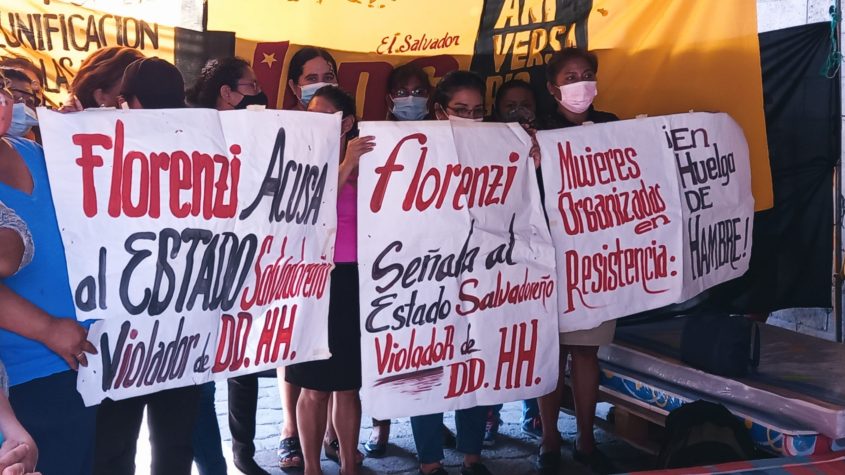 UNIFICACION
LAS
El. Salvador
ANI
VERSA
Florenzi Acusa
al ESTADO Salvadoreño
Violador de DD. HH.
Florenzi
Señala al
Estado Salvadoreño
Violador de
DD. HH.
Mujeres
Organizadas
en
Resistencia:
¡En
Huelga
DE
HAMBRE!